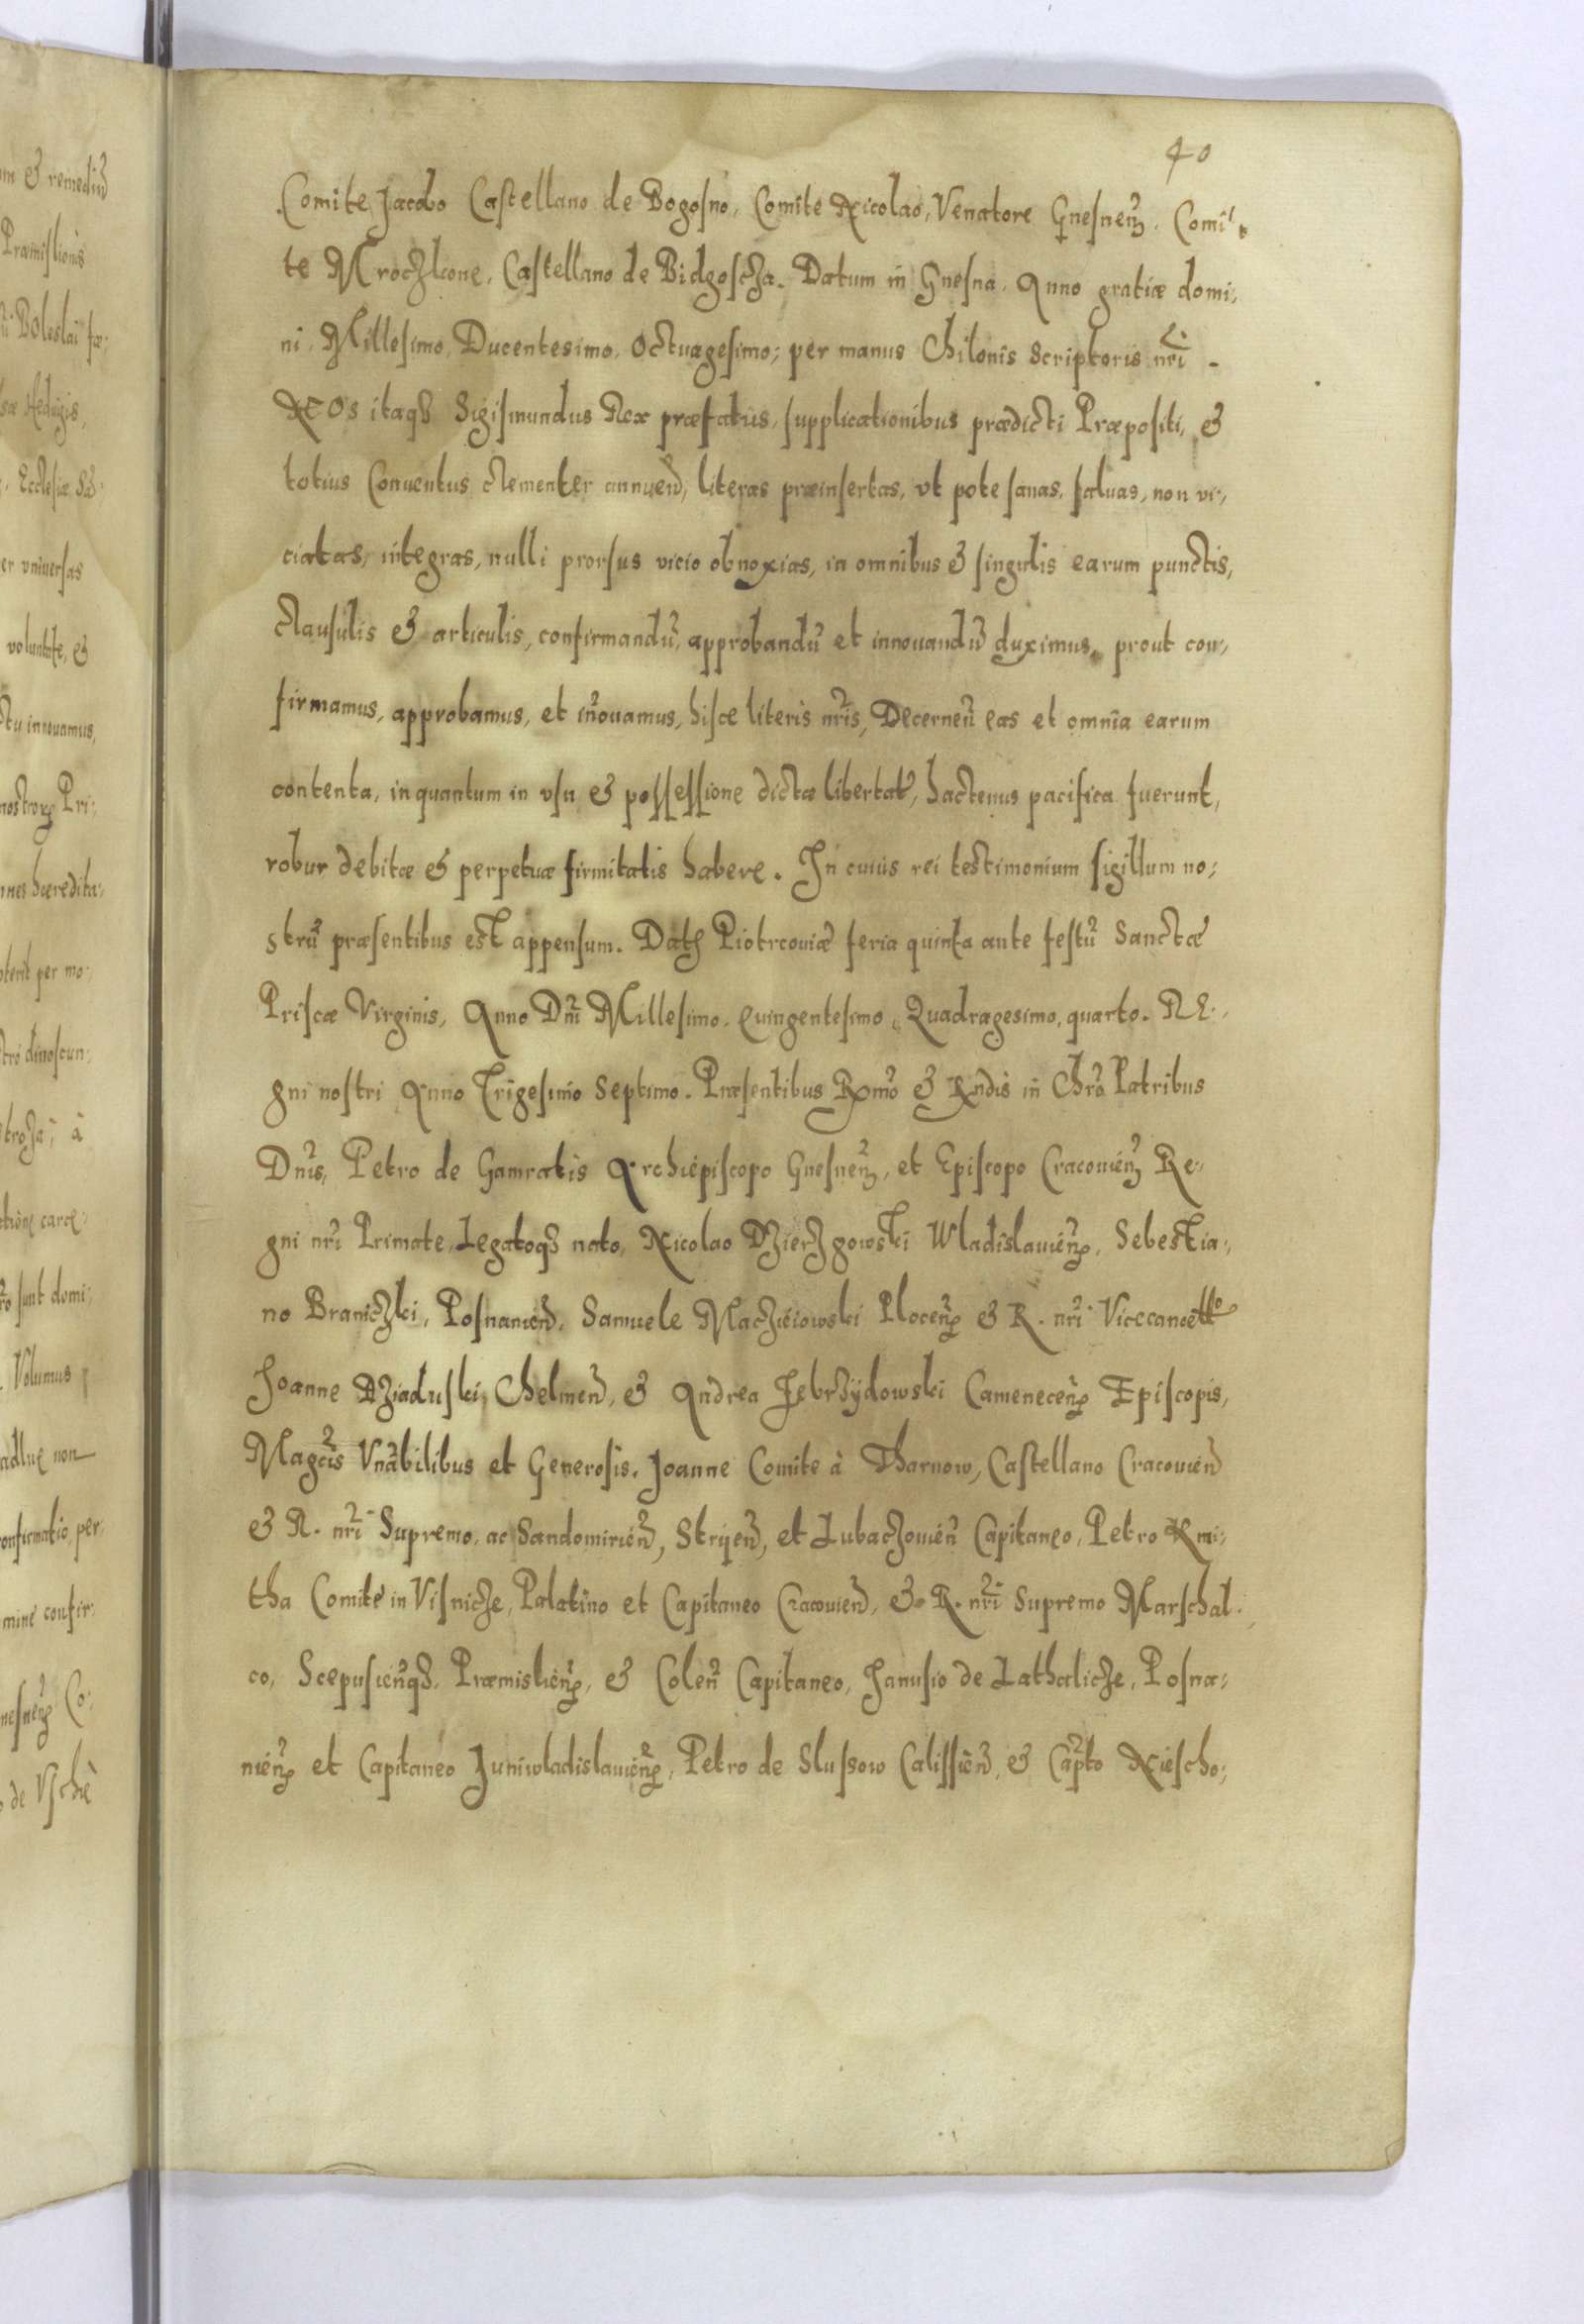 40
Comite Jacobo Castellano de Bogosno, Comite Nicolao, Venatore Gnesneñ. Comi-
te Mroczkone, Castellano de Bidgoscza. Datum in Gnesna. Anno gratiæ domi-
ni, Millesimo, Ducentesimo, Octuagesimo; per manus Chilonis Scriptoris nr̃i.
NEOs itaqȝ Sigismundus Rex præfatus, supplicationibus prædicti Præpositi, &
totius Conuentus clementer annueñ, literas præinsertas, vt pote sanas, saluas, non vi-
ciatas, integras, nulli prorsus vicio obnoxias, in omnibus & singulis earum punctis,
clausulis & articulis, confirmandũ, approbandũ et innouandũ duximus, prout con-
firmamus, approbamus, et iñouamus, hisce literis nr̃is, Decerneñ eas et omnia earum
contenta, inquantum in vsu & possessione dictæ libertat, hactenus pacifica fuerunt,
robur debitæ & perpetuæ firmitatis habere. In cuius rei testimonium sigillum no-
strũ præsentibus est appensum. Dat Piotrcouiæ feria quinta ante festũ Sanctæ
Priscæ Virginis, Anno Dñi Millesimo, Quingentesimo, Quadragesimo, quarto. RE-
gni nostri Anno Trigesimo Septimo. Præsentibus Rx̃mo & Rñdis in Chrõ Patribus
Dñis, Petro de Gamratis Archiepiscopo Gnesneñ, et Episcopo Cracouieñ Re-
gni nr̃i Primate, Legatoqȝ nato, Nicolao Dzierzgowski Wladislauieñ, Sebestia-
no Braniczki, Posnanieñ, Samuele Macziéiowski Ploceñ & R. nr̃i Vicecancello
Joanne Dziaduski, Chelmeñ, & Andrea Zebrzÿdowski Cameneceñ Episcopis,
Magcis Vnãbilibus et Generosis, Joanne Comite à Tharnow, Castellano Cracouieñ
& R. nr̃i Supremo, ac Sandomirieñ, Strijeñ, et Lubaczouieñ Capitaneo, Petro Kmi-
tha Comite in Visnicze, Palatino et Capitaneo Cracouieñ, & R. nr̃i Supremo Marschal-
co, Scepusieñqȝ, Præmislieñ, & Coleñ Capitaneo, Janusio de Lathalicze, Posna-
nieñ et Capitaneo Juniwladislauieñ, Petro de Slussow Calissieñ, & Cap̃to Xiescho-